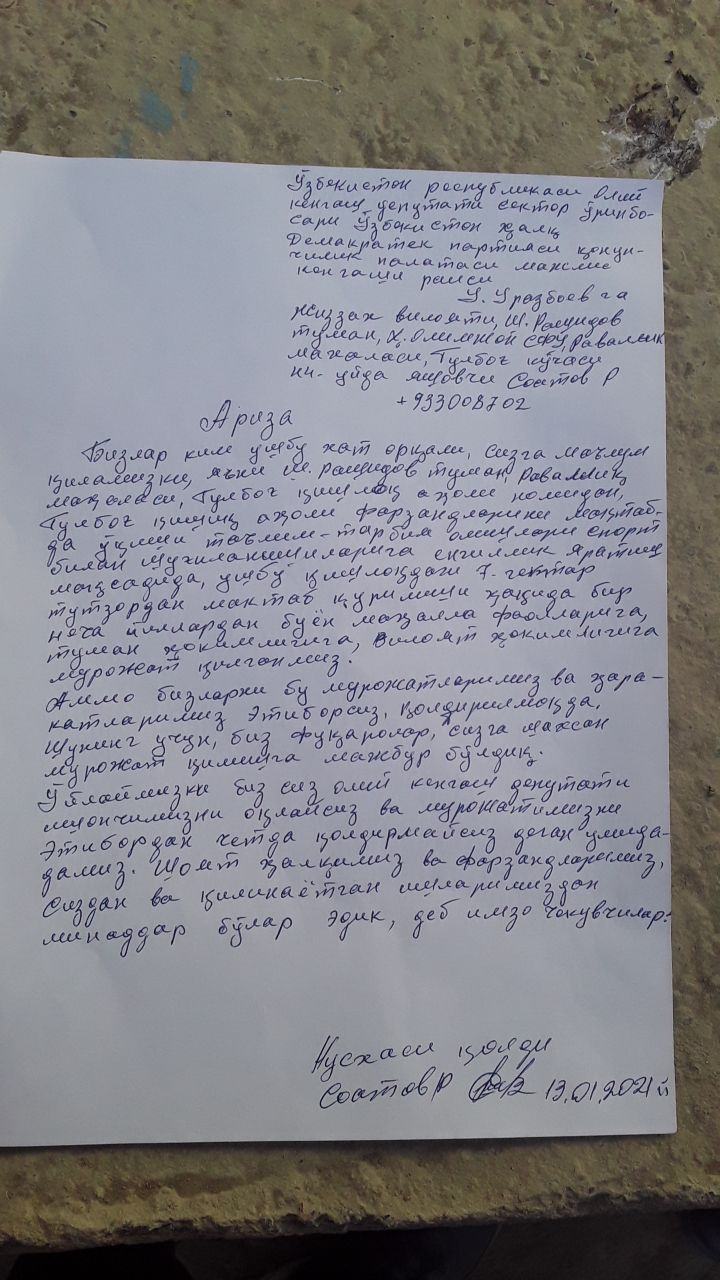 Ўзбекистон республикаси Олий
кенгаш депутати сектор ўринбо-
сари Ўзбекистон ҳалқ
Демакратек партияси қонун-
чилик палатаси мажлис
кенгаши раиси
У. Уразбоев га
Жиззах вилояти, Ш. Рашидов
туман, Ҳ. Олимжон СФУ, Раваллик
махаласи, Тулбоғ кўчаси
нн- уйда яшовчи Соатов Р
+933008702
Ариза
Бизлар ким ушбу хат орқали, Сизга маълум
қиламизки, яъни Ш. Рашидов туман, Раваллиқ
маҳаласи, Тулбоғ қишлоқ аҳоли номидан,
Тулбоғ қишлоқ аҳоли фарзандларини мактаб-
да ўқиши таълим-тарбия олишлари спорт
билан шуғиланишиларига енгиллик яратиш
мақсадида, ушбу қишлоқдаги 7-гектар
тутзордан мактаб қурилиши ҳақида бир
неча йиллардан буён маҳалла фаолларига,
туман ҳокимлигига, вилоят ҳокимлигига
мурожат қилганмиз.
Аммо бизларни бу мурожатларимиз ва ҳара-
катларимиз Этиборсиз, қолдирилмоқда,
Шунинг учун, биз фуқаролар, сизга махсан
мурожат қилишга мажбур бўлдик.
Ўйлаймизки биз сиз олий кенгаш депутати
ишончимизни оқлайсиз ва мурожатимизни
Этибордан четда қолдирмайсиз деган умида-
дамиз. Шоят ҳалқимиз ва фарзандларимиз,
Сиздан ва қилинаётган ишларимиздан
минаддар бўлар эдик, деб имзо чекувчилар:
Нусхаси қолди
Соатов Р 13.01.2021 й